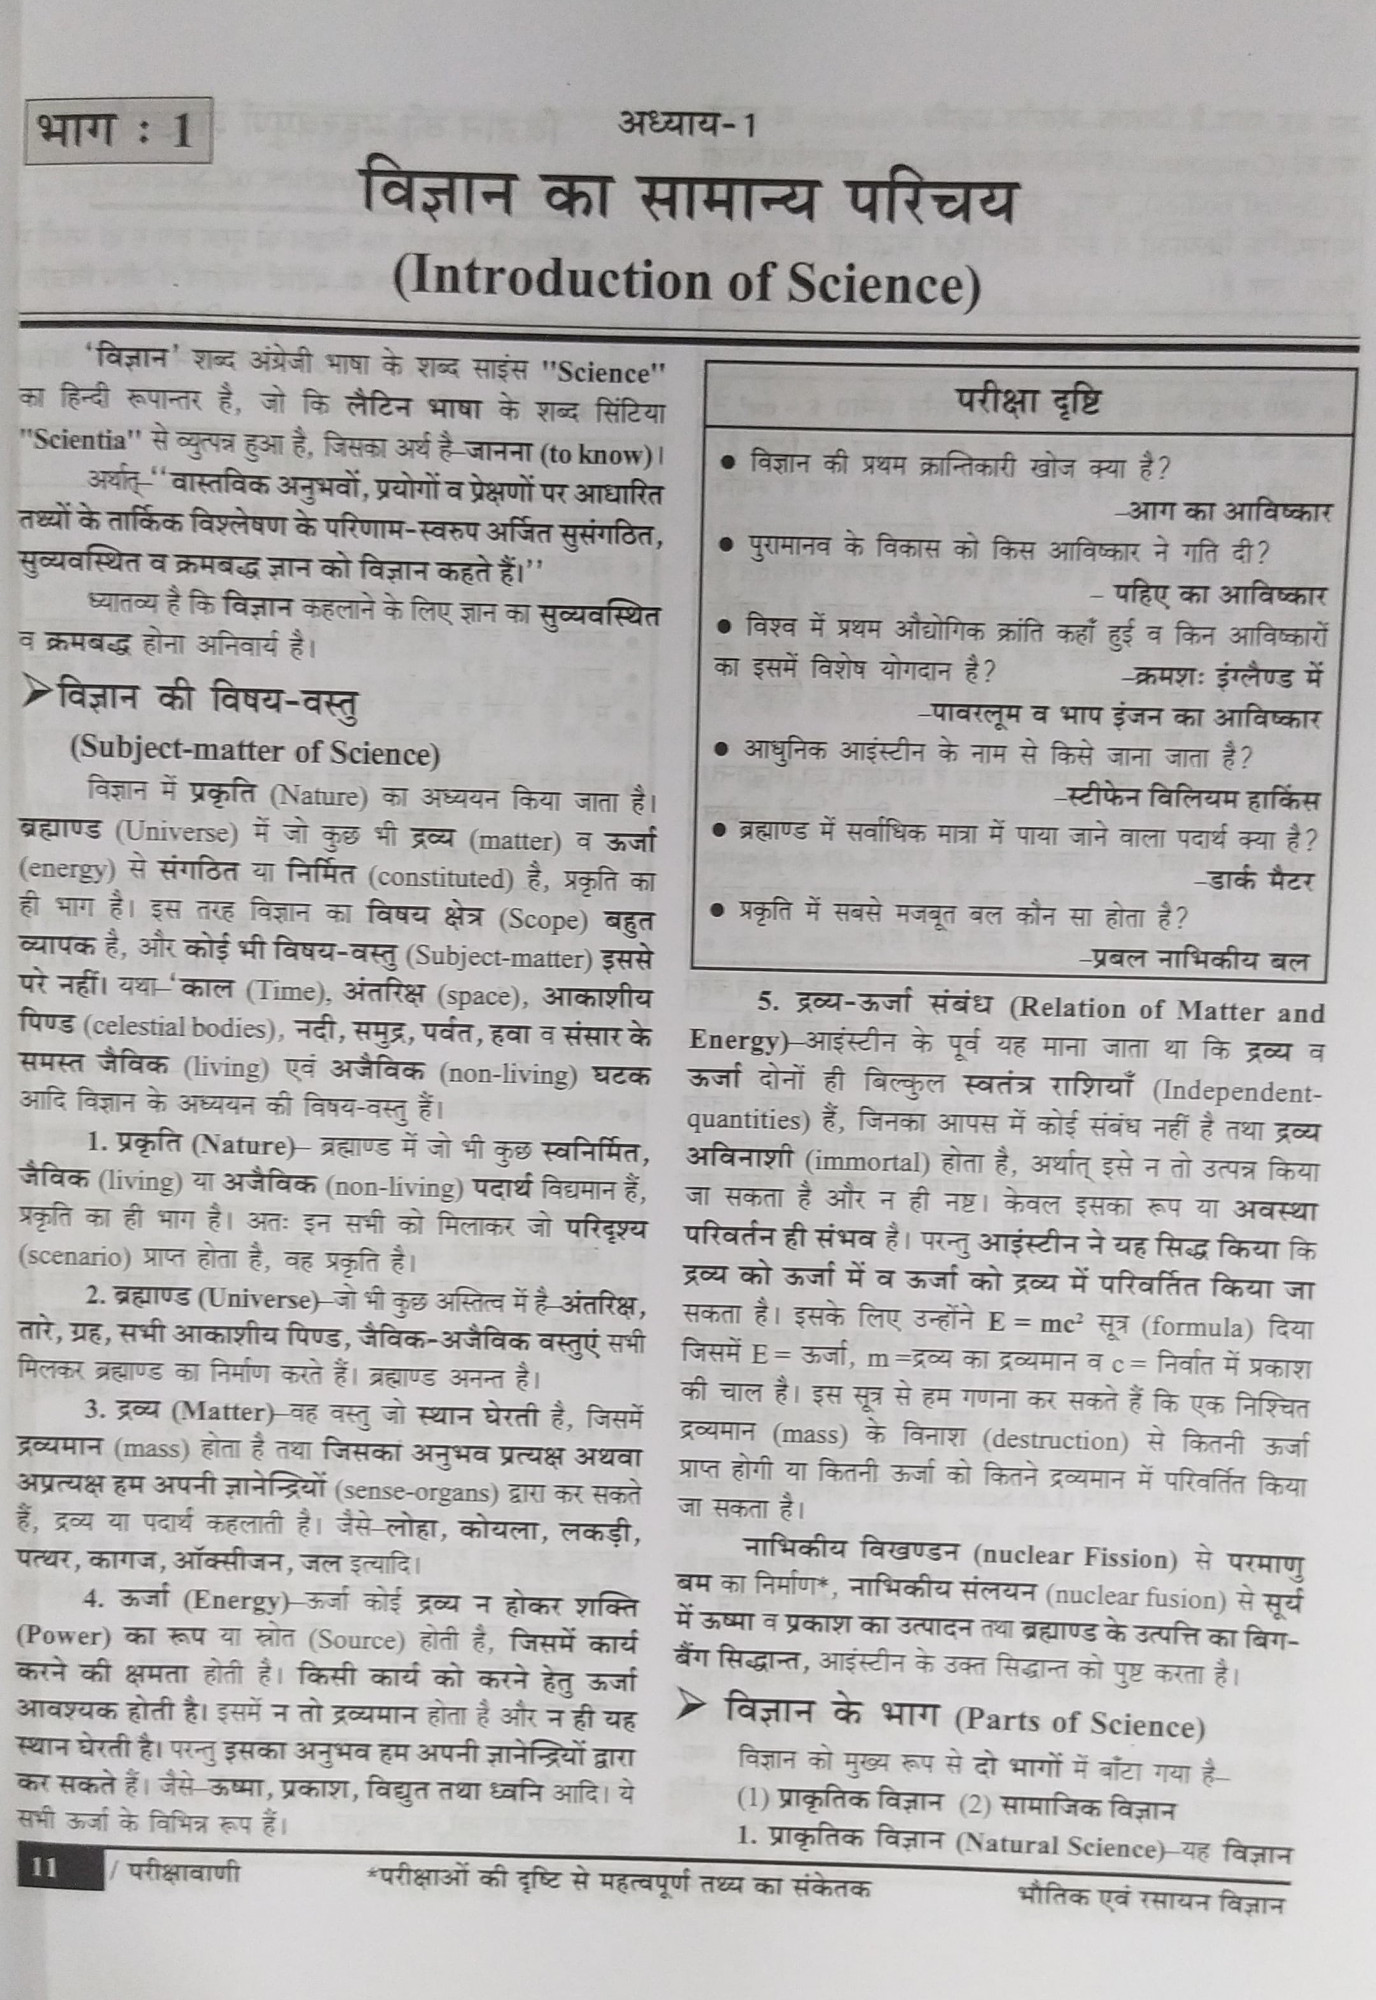 भाग : 1
अध्याय-1
विज्ञान का सामान्य परिचय
(Introduction of Science)
'विज्ञान' शब्द अंग्रेजी भाषा के शब्द साइंस "Science"
का हिन्दी रूपान्तर है, जो कि लैटिन भाषा के शब्द सिंटिया
"Scientia" से व्युत्पन्न हुआ है, जिसका अर्थ है–जानना (to know)।
अर्थात्–''वास्तविक अनुभवों, प्रयोगों व प्रेक्षणों पर आधारित
तथ्यों के तार्किक विश्लेषण के परिणाम-स्वरुप अर्जित सुसंगठित,
सुव्यवस्थित व क्रमबद्ध ज्ञान को विज्ञान कहते हैं।''
ध्यातव्य है कि विज्ञान कहलाने के लिए ज्ञान का सुव्यवस्थित
व क्रमबद्ध होना अनिवार्य है।
➤विज्ञान की विषय-वस्तु
(Subject-matter of Science)
विज्ञान में प्रकृति (Nature) का अध्ययन किया जाता है।
ब्रह्माण्ड (Universe) में जो कुछ भी द्रव्य (matter) व ऊर्जा
(energy) से संगठित या निर्मित (constituted) है, प्रकृति का
ही भाग है। इस तरह विज्ञान का विषय क्षेत्र (Scope) बहुत
व्यापक है, और कोई भी विषय-वस्तु (Subject-matter) इससे
परे नहीं। यथा–'काल (Time), अंतरिक्ष (space), आकाशीय
पिण्ड (celestial bodies), नदी, समुद्र, पर्वत, हवा व संसार के
समस्त जैविक (living) एवं अजैविक (non-living) घटक
आदि विज्ञान के अध्ययन की विषय-वस्तु हैं।
1. प्रकृति (Nature)– ब्रह्माण्ड में जो भी कुछ स्वनिर्मित,
जैविक (living) या अजैविक (non-living) पदार्थ विद्यमान हैं,
प्रकृति का ही भाग है। अतः इन सभी को मिलाकर जो परिदृश्य
(scenario) प्राप्त होता है, वह प्रकृति है।
2. ब्रह्माण्ड (Universe)–जो भी कुछ अस्तित्व में है–अंतरिक्ष,
तारे, ग्रह, सभी आकाशीय पिण्ड, जैविक-अजैविक वस्तुएं सभी
मिलकर ब्रह्माण्ड का निर्माण करते हैं। ब्रह्माण्ड अनन्त है।
3. द्रव्य (Matter)–वह वस्तु जो स्थान घेरती है, जिसमें
द्रव्यमान (mass) होता है तथा जिसका अनुभव प्रत्यक्ष अथवा
अप्रत्यक्ष हम अपनी ज्ञानेन्द्रियों (sense-organs) द्वारा कर सकते
हैं, द्रव्य या पदार्थ कहलाती है। जैसे–लोहा, कोयला, लकड़ी,
पत्थर, कागज, ऑक्सीजन, जल इत्यादि।
4. ऊर्जा (Energy)–ऊर्जा कोई द्रव्य न होकर शक्ति
(Power) का रूप या स्रोत (Source) होती है, जिसमें कार्य
करने की क्षमता होती है। किसी कार्य को करने हेतु ऊर्जा
आवश्यक होती है। इसमें न तो द्रव्यमान होता है और न ही यह
स्थान घेरती है। परन्तु इसका अनुभव हम अपनी ज्ञानेन्द्रियों द्वारा
कर सकते हैं। जैसे–ऊष्मा, प्रकाश, विद्युत तथा ध्वनि आदि। ये
सभी ऊर्जा के विभिन्न रूप हैं।
परीक्षा दृष्टि
● विज्ञान की प्रथम क्रान्तिकारी खोज क्या है?
–आग का आविष्कार
● पुरामानव के विकास को किस आविष्कार ने गति दी?
– पहिए का आविष्कार
● विश्व में प्रथम औद्योगिक क्रांति कहाँ हुई व किन आविष्कारों
का इसमें विशेष योगदान है? –क्रमशः इंग्लैण्ड में
–पावरलूम व भाप इंजन का आविष्कार
● आधुनिक आइंस्टीन के नाम से किसे जाना जाता है?
–स्टीफेन विलियम हाकिंस
● ब्रह्माण्ड में सर्वाधिक मात्रा में पाया जाने वाला पदार्थ क्या है?
–डार्क मैटर
● प्रकृति में सबसे मजबूत बल कौन सा होता है?
–प्रबल नाभिकीय बल
5. द्रव्य-ऊर्जा संबंध (Relation of Matter and
Energy)–आइंस्टीन के पूर्व यह माना जाता था कि द्रव्य व
ऊर्जा दोनों ही बिल्कुल स्वतंत्र राशियाँ (Independent-
quantities) हैं, जिनका आपस में कोई संबंध नहीं है तथा द्रव्य
अविनाशी (immortal) होता है, अर्थात् इसे न तो उत्पन्न किया
जा सकता है और न ही नष्ट। केवल इसका रूप या अवस्था
परिवर्तन ही संभव है। परन्तु आइंस्टीन ने यह सिद्ध किया कि
द्रव्य को ऊर्जा में व ऊर्जा को द्रव्य में परिवर्तित किया जा
सकता है। इसके लिए उन्होंने E = mc² सूत्र (formula) दिया
जिसमें E = ऊर्जा, m =द्रव्य का द्रव्यमान व c = निर्वात में प्रकाश
की चाल है। इस सूत्र से हम गणना कर सकते हैं कि एक निश्चित
द्रव्यमान (mass) के विनाश (destruction) से कितनी ऊर्जा
प्राप्त होगी या कितनी ऊर्जा को कितने द्रव्यमान में परिवर्तित किया
जा सकता है।
नाभिकीय विखण्डन (nuclear Fission) से परमाणु
बम का निर्माण*, नाभिकीय संलयन (nuclear fusion) से सूर्य
में ऊष्मा व प्रकाश का उत्पादन तथा ब्रह्माण्ड के उत्पत्ति का बिग-
बैंग सिद्धान्त, आइंस्टीन के उक्त सिद्धान्त को पुष्ट करता है।
➤ विज्ञान के भाग (Parts of Science)
विज्ञान को मुख्य रूप से दो भागों में बाँटा गया है–
(1) प्राकृतिक विज्ञान (2) सामाजिक विज्ञान
1. प्राकृतिक विज्ञान (Natural Science)–यह विज्ञान
11 / परीक्षावाणी *परीक्षाओं की दृष्टि से महत्वपूर्ण तथ्य का संकेतक भौतिक एवं रसायन विज्ञान